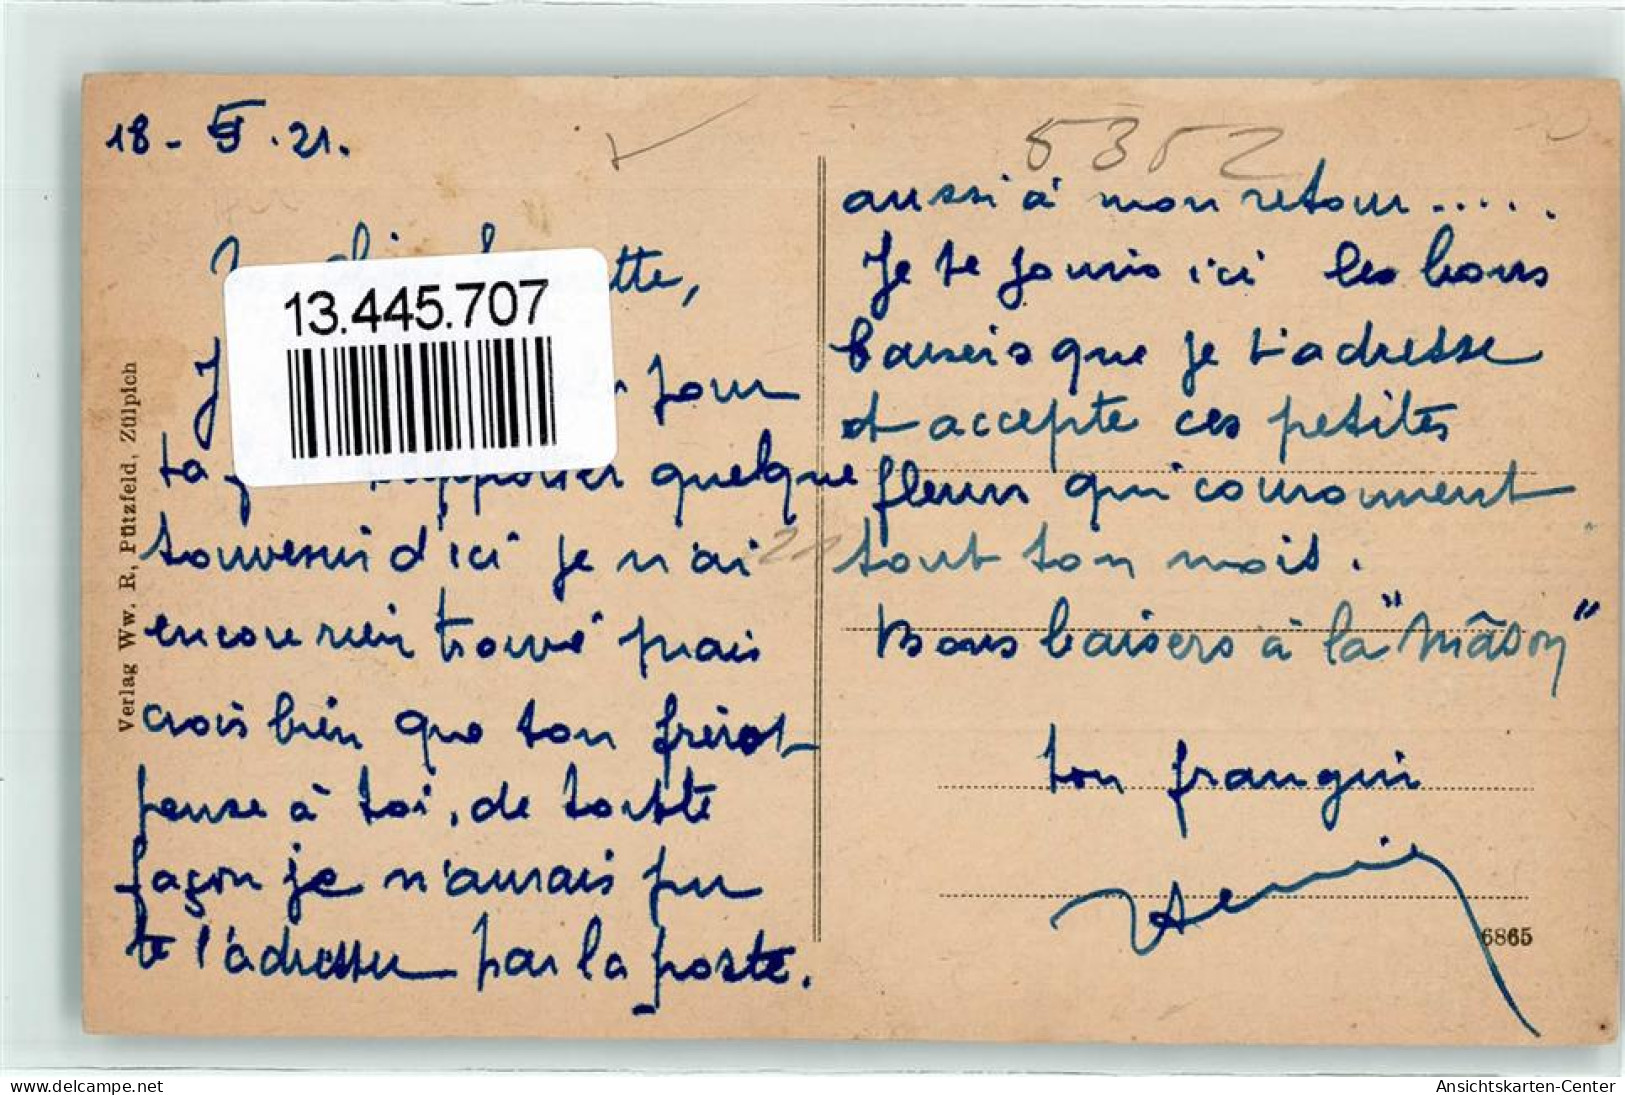 18 - VI . 21.
5352
tte,
13.445.707
J
jour
ta quelque
souvenir d'ici je n'ai
encore rien trouvé mais
crois bien que ton frérot
pense à toi, de toute
façon je n'aurais pu
te l'adresser par la poste.
aussi à mon retour.....
Je te fournis ici les bons
baisers que je t'adresse
et accepte ces petites
fleurs qui couronnent
tout ton mois.
Bons baisers à la "Mâson"
ton frangin
6865
Verlag Ww. R. Pützfeld, Zülpich
www.delcampe.net
Ansichtskarten-Center